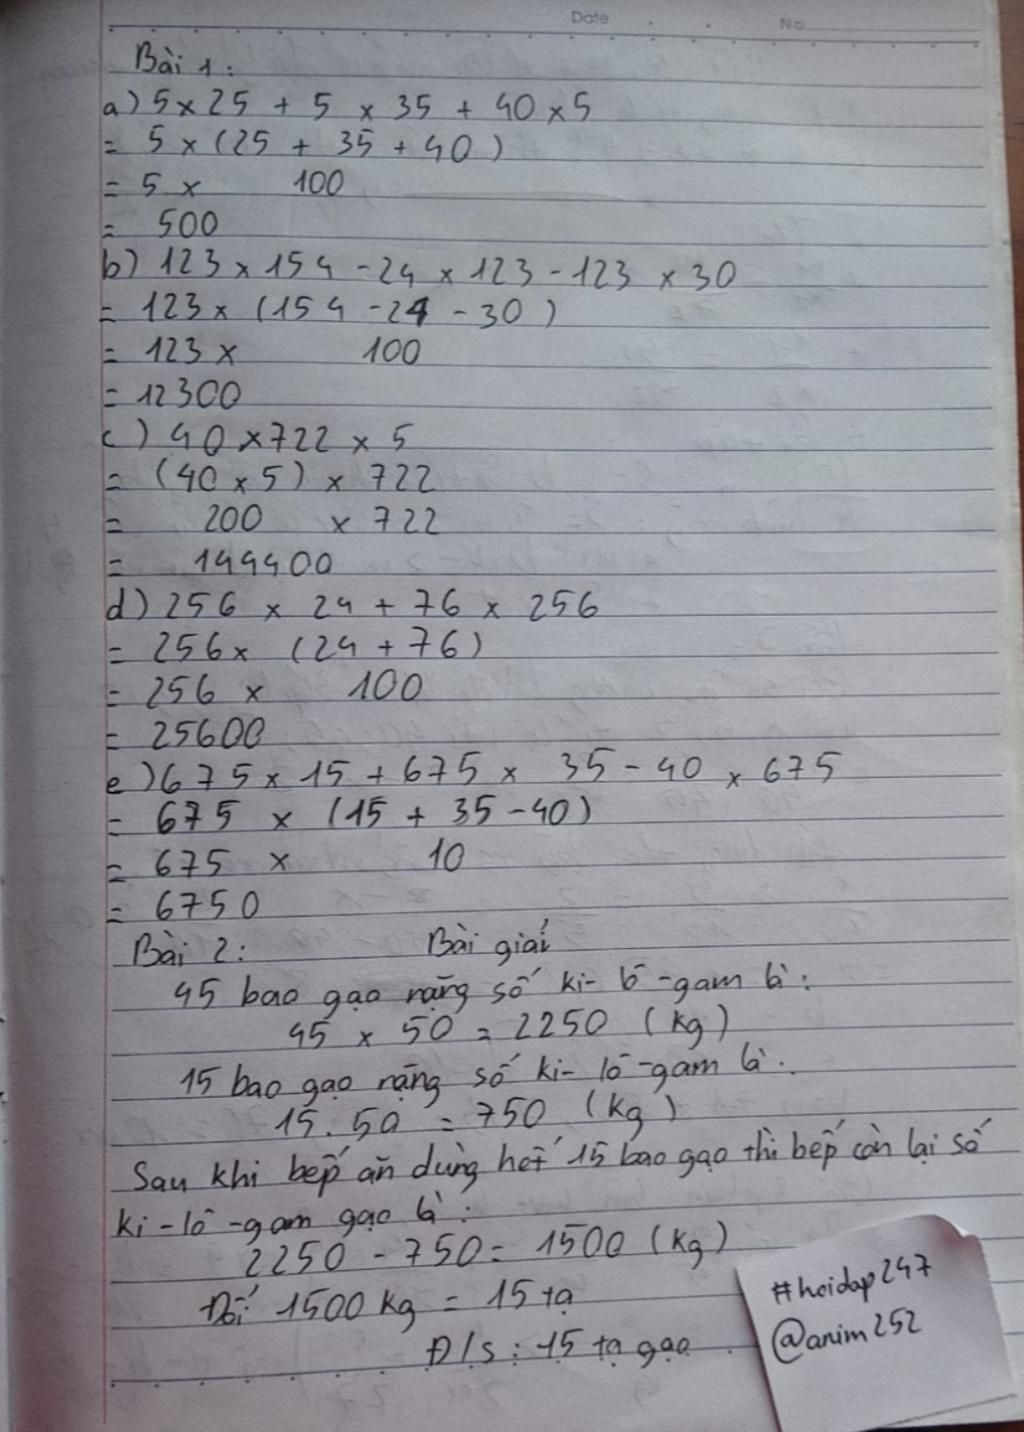 Date No
Bài 1:
a) 5 x 25 + 5 x 35 + 40 x 5
= 5 x (25 + 35 + 40)
= 5 x 100
= 500
b) 123 x 154 - 24 x 123 - 123 x 30
= 123 x (154 - 24 - 30)
= 123 x 100
= 12300
c) 40 x 722 x 5
= (40 x 5) x 722
= 200 x 722
= 144400
d) 256 x 24 + 76 x 256
= 256 x (24 + 76)
= 256 x 100
= 25600
e) 675 x 15 + 675 x 35 - 40 x 675
= 675 x (15 + 35 - 40)
= 675 x 10
= 6750
Bài 2: Bài giải
45 bao gạo nặng số ki-lô-gam là:
45 x 50 = 2250 (kg)
15 bao gạo nặng số ki-lô-gam là:
15.50 = 750 (kg)
Sau khi bếp ăn dùng hết 15 bao gạo thì bếp còn lại số
ki-lô-gam gạo là:
2250 - 750 = 1500 (kg)
Đổi 1500 kg = 15 tạ
Đ/s: 15 tạ gạo
#hoidap247
@anim252